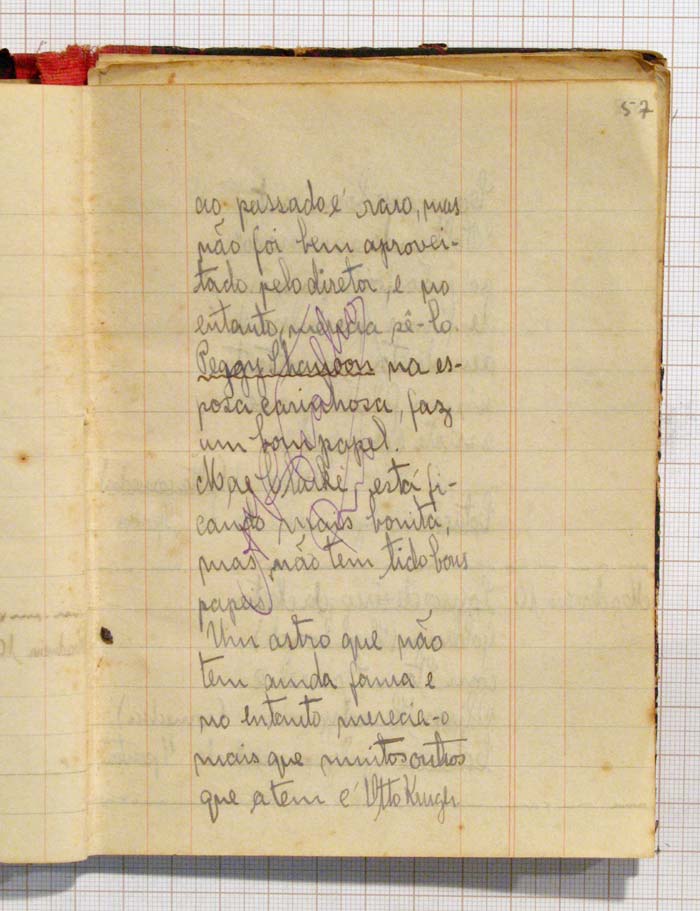 57
ao passado é raro, mas
não foi bem aprovei-
tado pelo diretor, e no
entanto, merecia sê-lo.
Peggy Shannon na es-
posa carinhosa, faz
um bom papel.
Mae Clarke está fi-
cando mais bonita,
mas não tem tido bons
papeis.
Um astro que não
tem ainda fama e
no entanto merecia-o
mais que muitos outros
que a tem é Otto Kruger